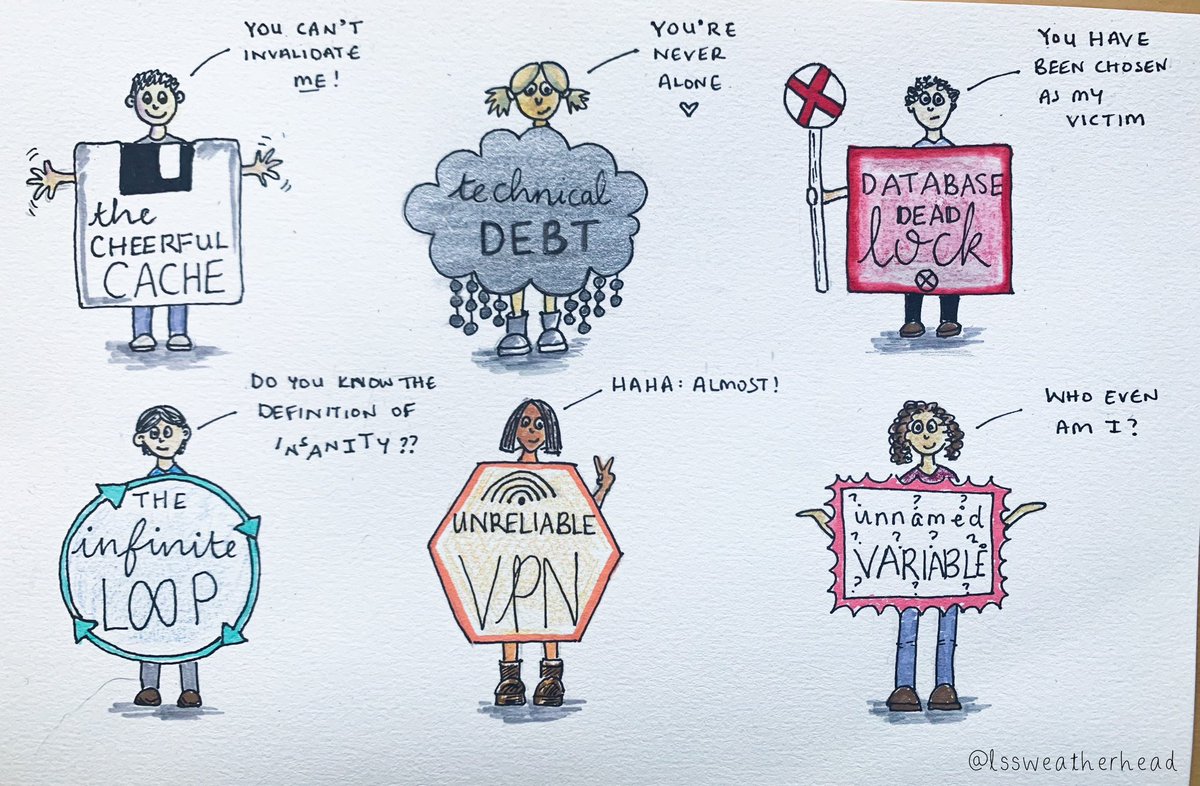 YOU CAN'T
INVALIDATE
ME!
the
CHEERFUL
CACHE
YOU'RE
NEVER
ALONE
technical
DEBT
YOU HAVE
BEEN CHOSEN
AS MY
VICTIM
DATABASE
DEAD
lock
DO YOU KNOW THE
DEFINITION OF
INSANITY??
THE
infinite
LOOP
HAHA: ALMOST!
UNRELIABLE
VPN
WHO EVEN
AM I?
? ? ?
unnamed
? ? ? ?
VARIABLE
? ? ?
@lssweatherhead